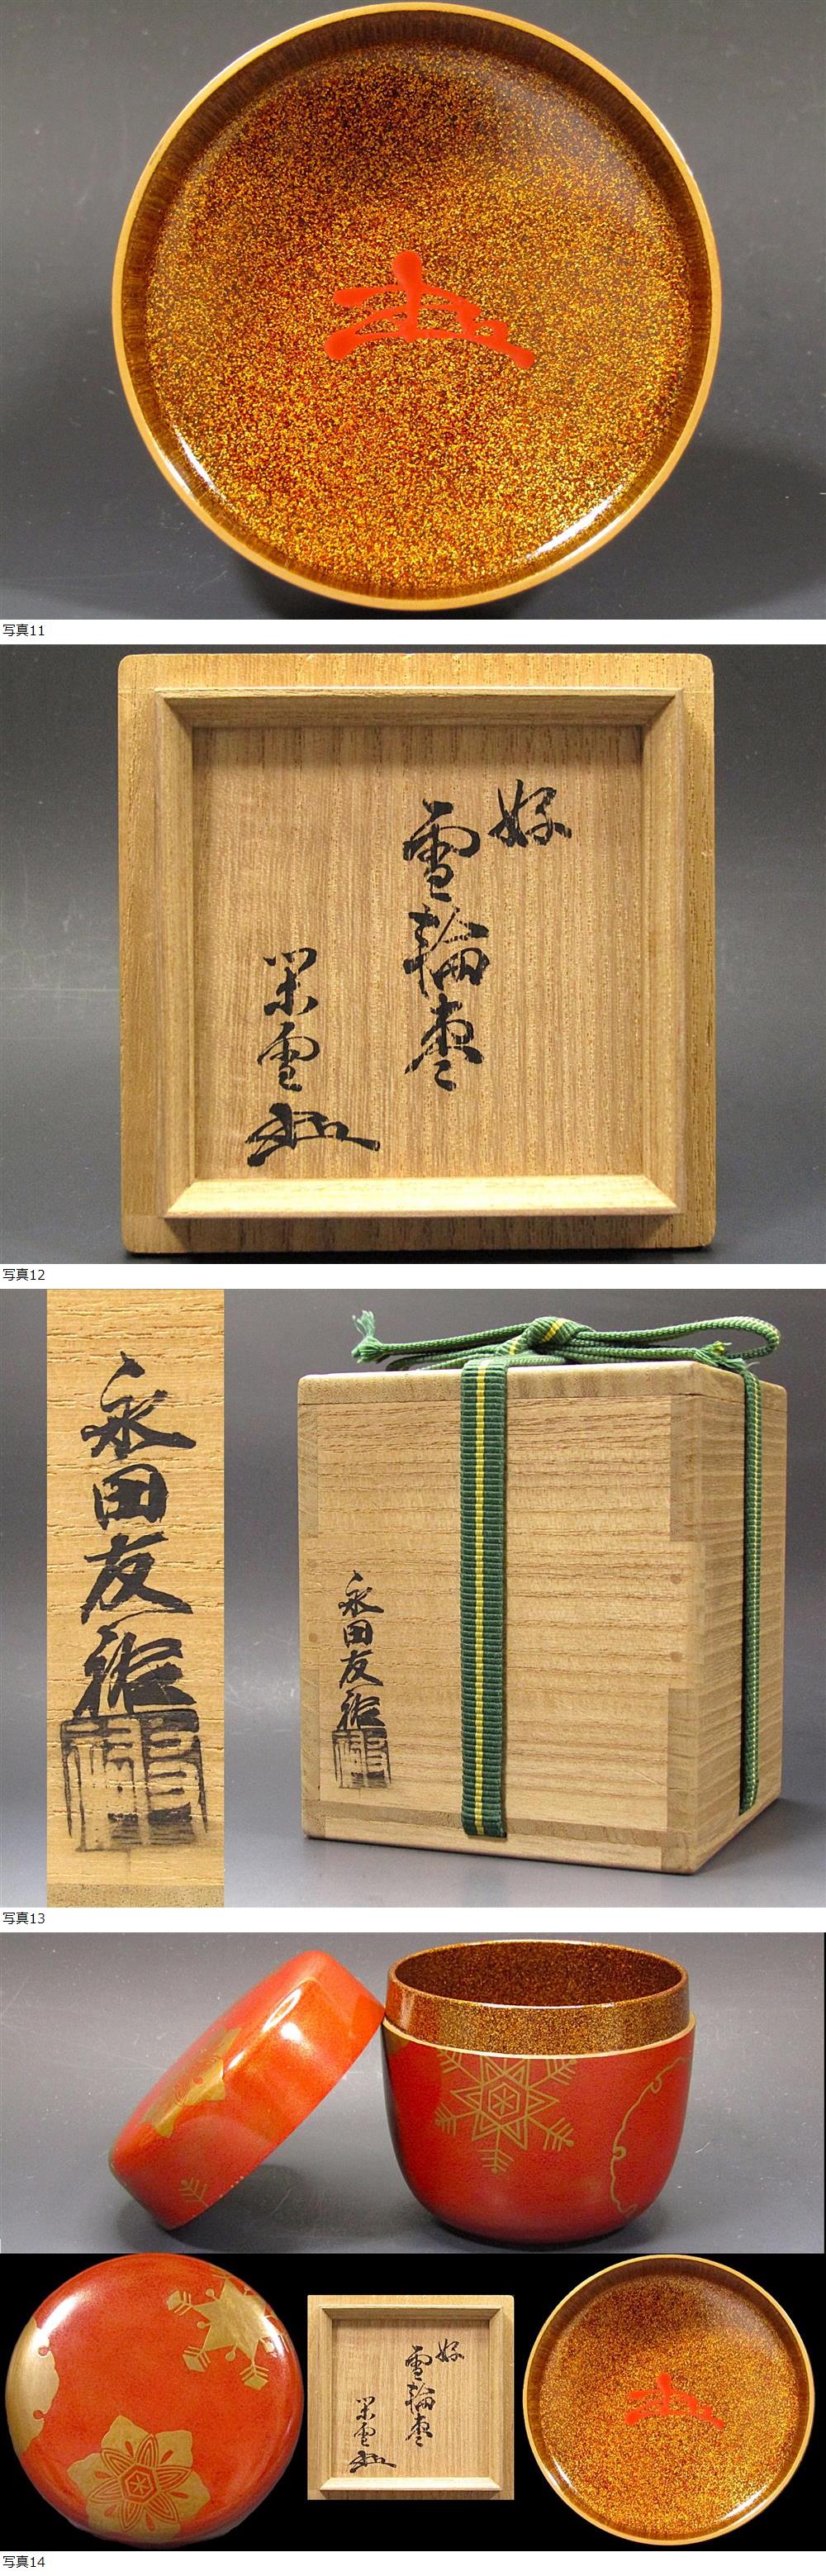 写真11
好
雪輪棗
閑雪
写真12
永田友術
永田友術
写真13
好
雪輪棗
閑雪
写真14